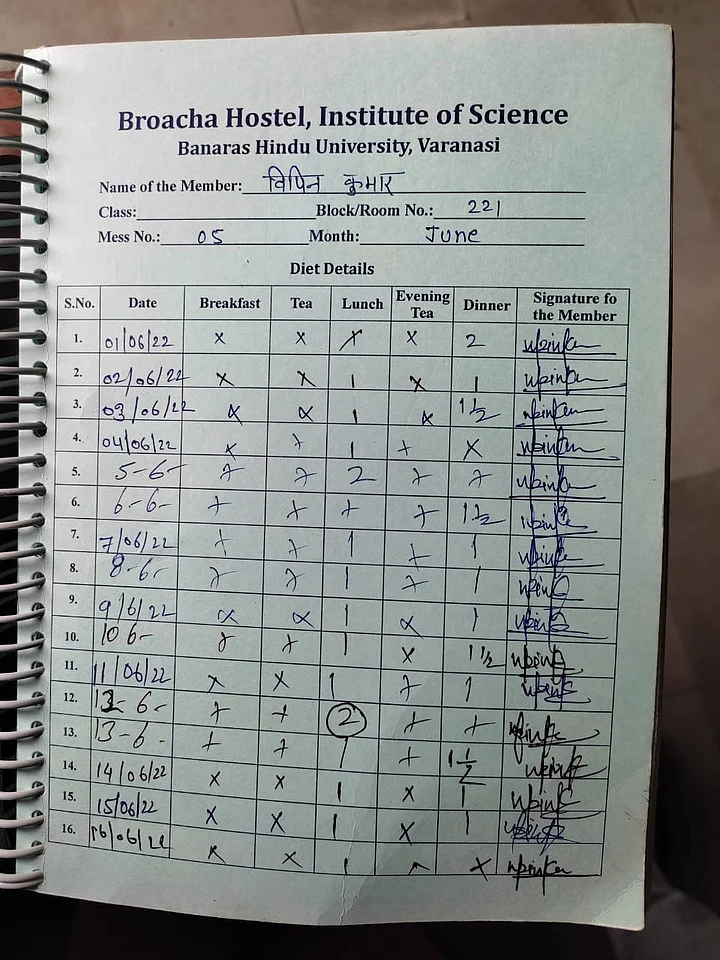 Broacha Hostel, Institute of Science
Banaras Hindu University, Varanasi
Name of the Member: विपिन कुमार
Class: Block/Room No.: 221
Mess No.: 05 Month: June
Diet Details
S.No. Date Breakfast Tea Lunch Evening Tea Dinner Signature fo the Member
1. 01/06/22 x x x x 2
2. 02/06/22 x x 1 x 1
3. 03/06/22 x x 1 x 1 1/2
4. 04/06/22 x x 1 x x
5. 5-6- x x 2 x x
6. 6-6- x x x x 1 1/2
7. 7/06/22 x x 1 x 1
8. 8-6- x x 1 x 1
9. 9/6/22 x x 1 x 1
10. 10 6- x x 1 x 1 1/2
11. 11/06/22 x x 1 x 1
12. 12 6- x x 2 x x
13. 13-6- x x 1 x 1 1/2
14. 14/06/22 x x 1 x 1
15. 15/06/22 x x 1 x 1
16. 16/06/22 x x 1 x x